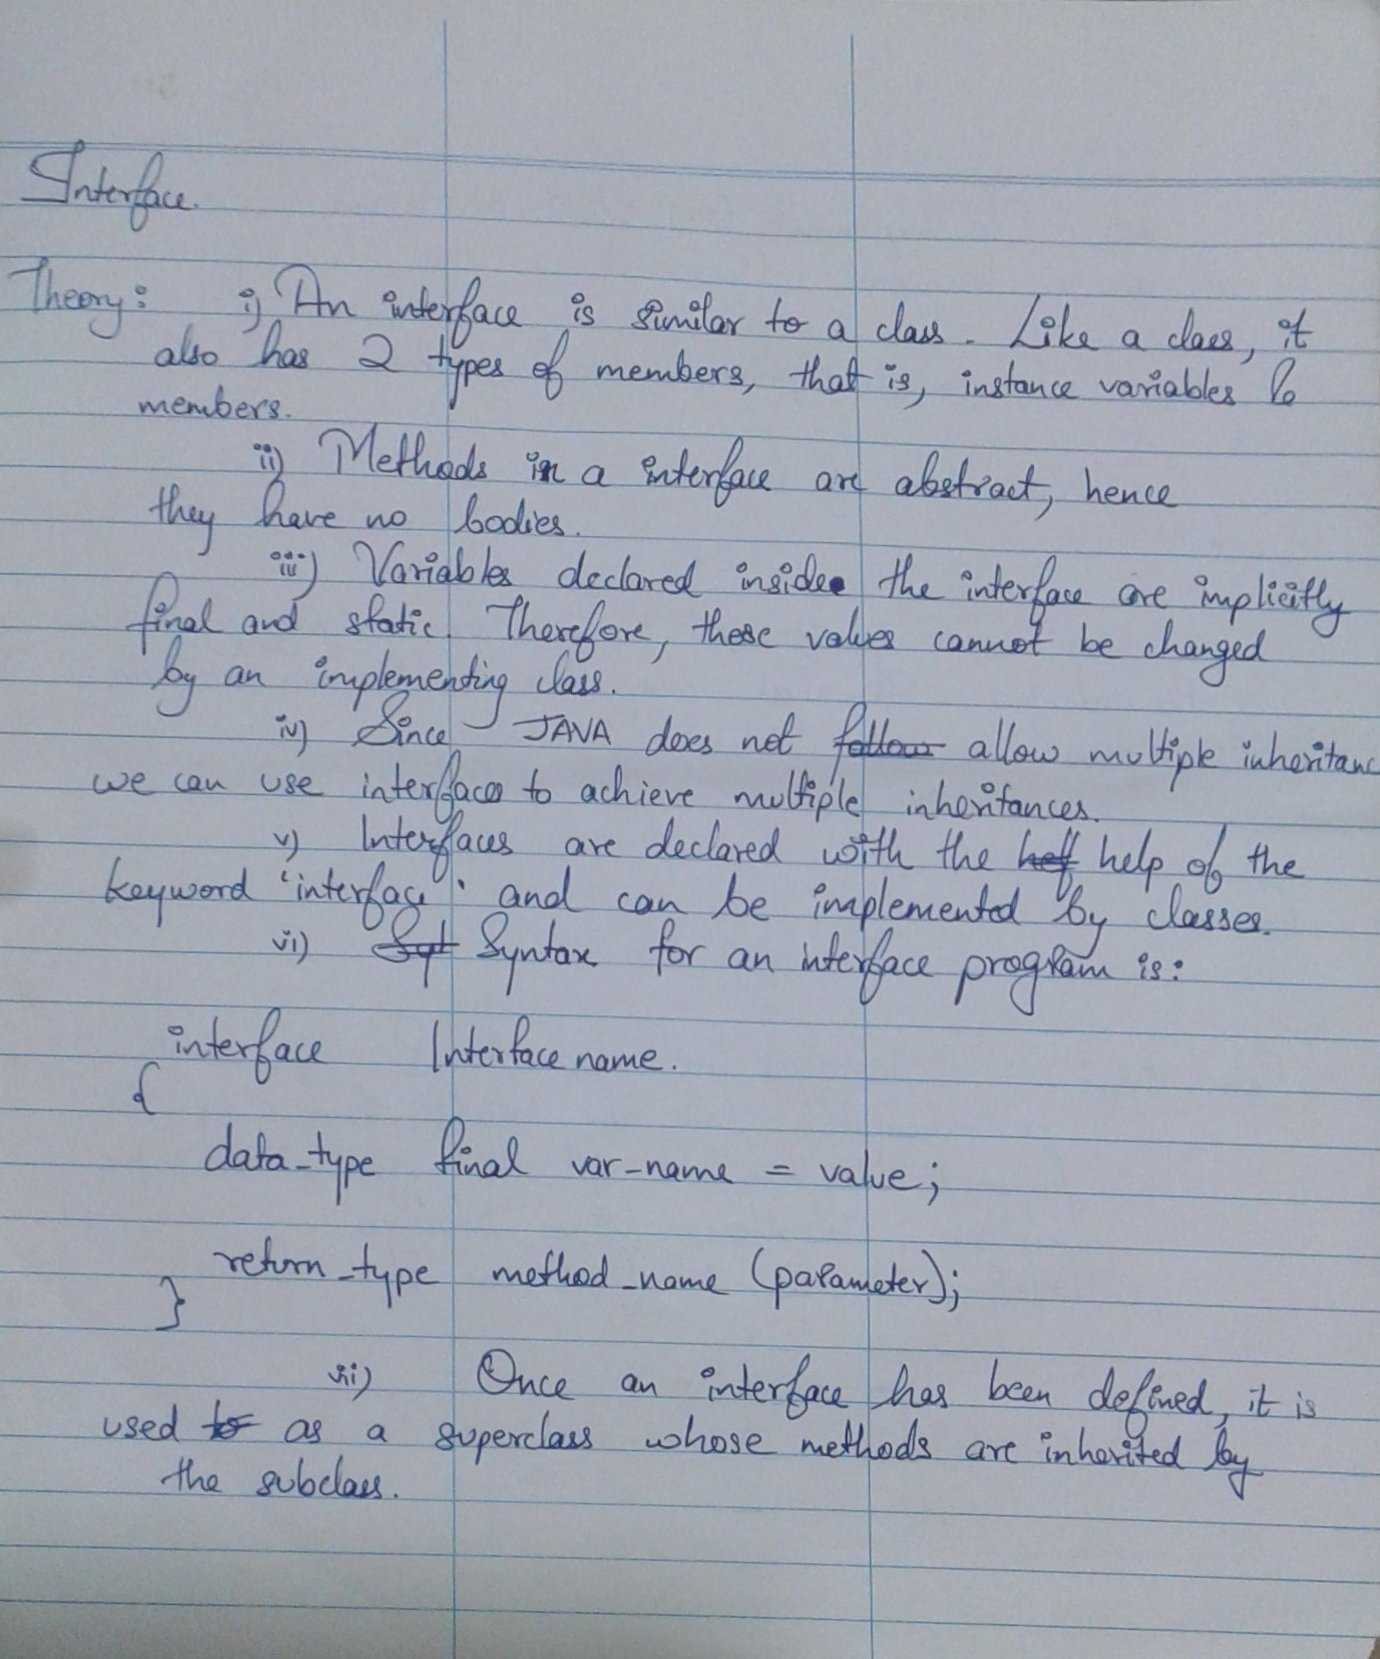 Interface.
Theory: i) An interface is similar to a class. Like a class, it
also has 2 types of members, that is, instance variables &
members.
ii) Methods in a interface are abstract, hence
they have no bodies.
iii) Variables declared inside the interface are implicitly
final and static. Therefore, these values cannot be changed
by an implementing class.
iv) Since JAVA does not follow allow multiple inheritanc
we can use interfaces to achieve multiple inheritances.
v) Interfaces are declared with the help of the
keyword 'interface' and can be implemented by classes.
vi) Syntax for an interface program is:
interface Interface name.
{
data_type final var-name = value;
return_type method_name (parameter);
}
vii) Once an interface has been defined, it is
used to as a superclass whose methods are inherited by
the subclass.